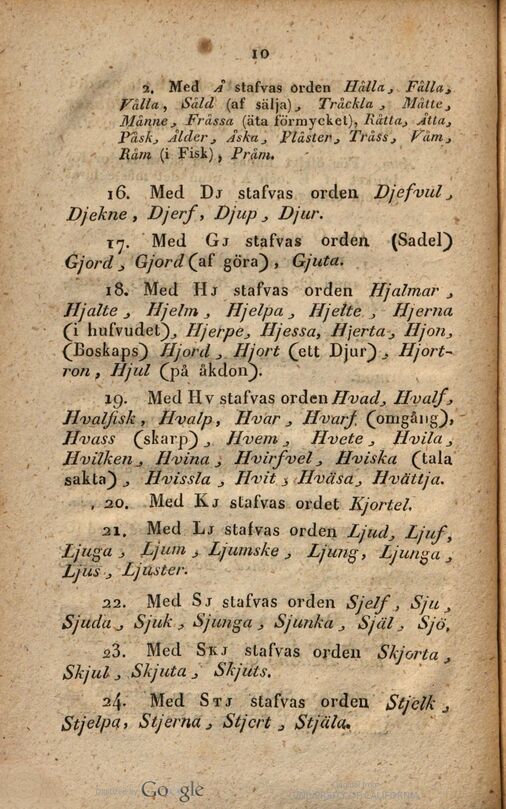 10
2. Med Å stafvas orden Hålla, Fålla,
Vålla, Såld (af sälja), Tråckla, Måtte,
Månne, Fråssa (äta förmycket), Råtta, Åtta,
Påsk, Ålder, Åska, Plåster, Tråss, Våm,
Råm (i Fisk), Pråm.
16. Med DJ stafvas orden Djefvul,
Djekne, Djerf, Djup, Djur.
17. Med GJ stafvas orden (Sadel)
Gjord, Gjord (af göra), Gjuta.
18. Med HJ stafvas orden Hjalmar,
Hjalte, Hjelm, Hjelpa, Hjelte, Hjerna
(i hufvudet), Hjerpe, Hjessa, Hjerta, Hjon,
(Boskaps) Hjord, Hjort (ett Djur), Hjort-
ron, Hjul (på åkdon).
19. Med Hv stafvas orden Hvad, Hvalf,
Hvalfisk, Hvalp, Hvar, Hvarf (omgång),
Hvass (skarp), Hvem, Hvete, Hvila,
Hvilken, Hvina, Hvirfvel, Hviska (tala
sakta), Hvissla, Hvit, Hväsa, Hvättja.
20. Med KJ stafvas ordet Kjortel.
21. Med LJ stafvas orden Ljud, Ljuf,
Ljuga, Ljum, Ljumske, Ljung, Ljunga,
Ljus, Ljuster.
22. Med SJ stafvas orden Sjelf, Sju,
Sjuda, Sjuk, Sjunga, Sjunka, Själ, Sjö.
23. Med SKJ stafvas orden Skjorta,
Skjul, Skjuta, Skjuts.
24. Med STJ stafvas orden Stjelk,
Stjelpa, Stjerna, Stjert, Stjäla.
Digitized by Google
Original from
UNIVERSITY OF CALIFORNIA